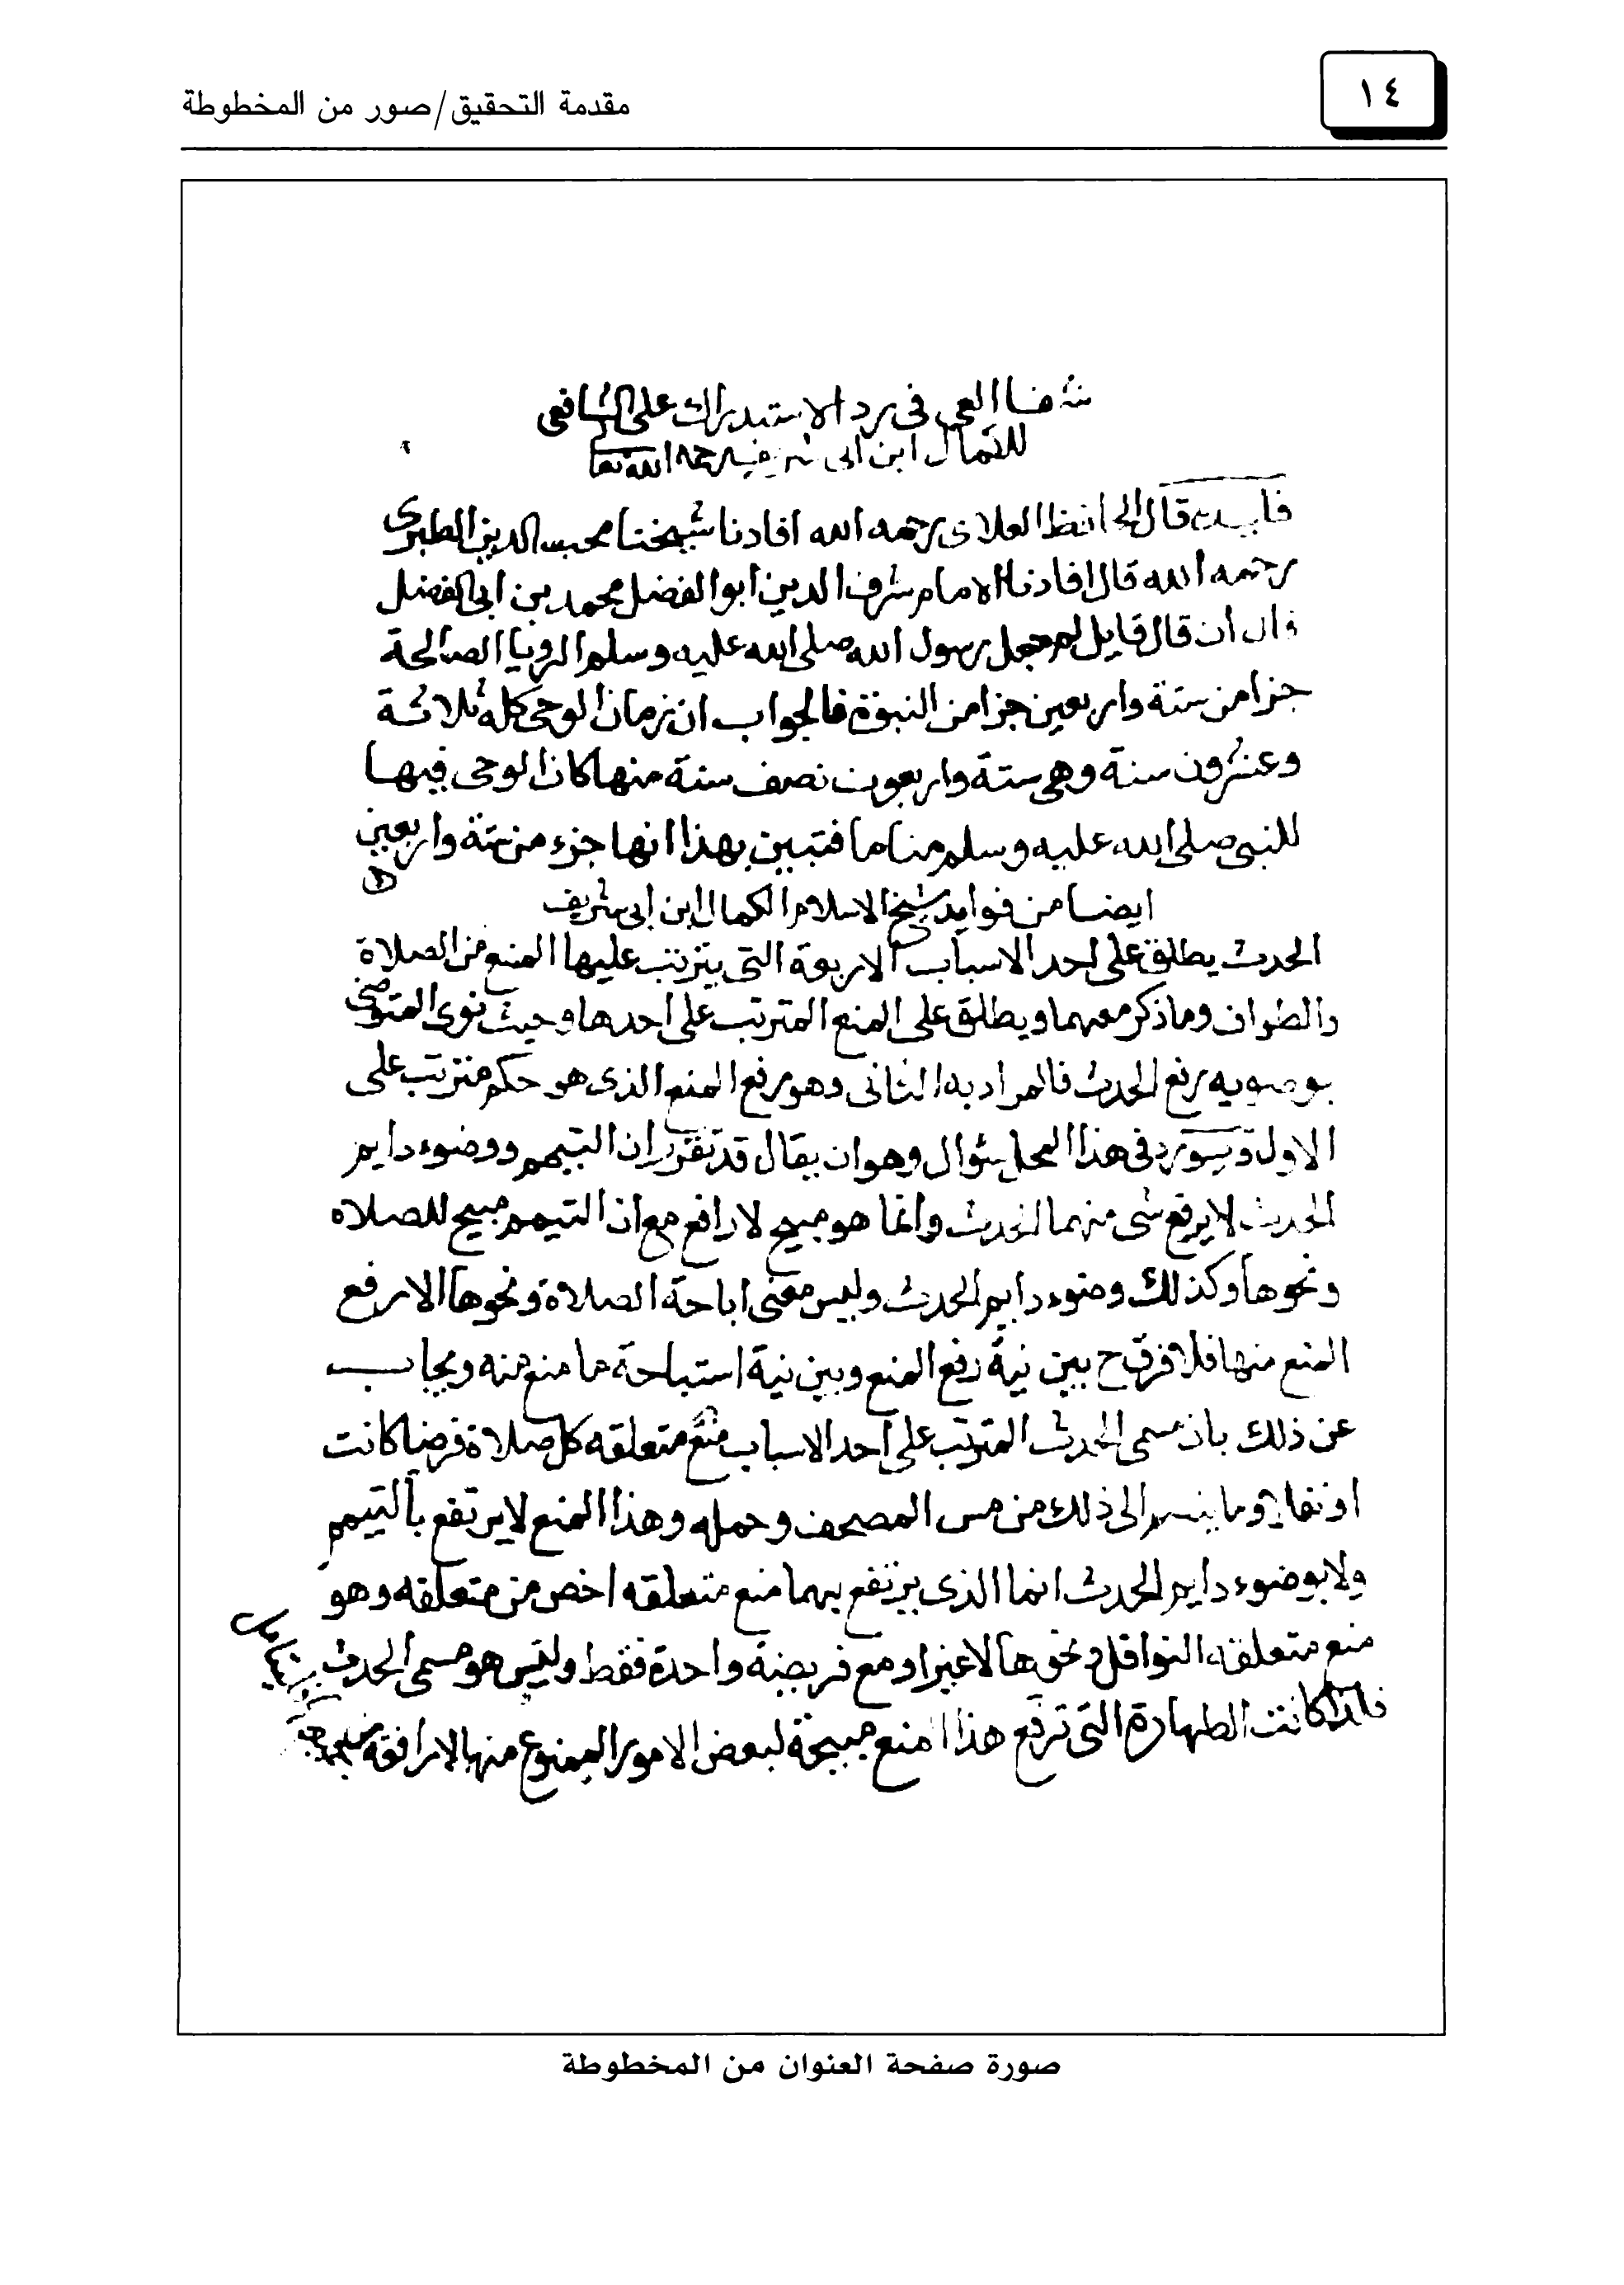 ١٤
مقدمة التحقيق/صور من المخطوطة
شفا العي في رد الاستدراك على الشافعي
للكمال ابن ابي شريف رحمه الله تعا
فايدة قال الحافظ العلاي رحمه الله افادنا شيخنا محب الدين الطبري
رحمه الله قال افادنا الامام شرف الدين ابو الفضل محمد بن ابي الفضل
قال ان قال قايل لم جعل رسول الله صلى الله عليه وسلم الرويا الصالحة
جزا من ستة واربعين جزا من النبوة فالجواب ان زمان الوحي كله ثلاثة
وعشرون سنة وهي ستة واربعون نصف سنة منها كان الوحي فيها
للنبي صلى الله عليه وسلم مناما فتبين بهذا انها جزء من ستة واربعين
ايضا من فوايد شيخ الاسلام الكمال ابن ابي شريف
الحدث يطلق على احد الاسباب الاربعة التي يترتب عليها المنع من الصلاة
والطواف وما ذكر معهما ويطلق على المنع المترتب على احدها وحيث نوى المتوضي
بوضويه رفع الحدث فالمراد به الثاني وهو رفع المنع الذي هو حكم مترتب على
الاول ويورد في هذا المحل سؤال وهو ان يقال قد تقرر ان التيمم ووضوء دايم
الحدث لا يرفع شي منهما الحدث وانما هو مبيح لا رافع مع ان التيمم مبيح للصلاه
ونحوها وكذلك وضوء دايم الحدث وليس معنى اباحة الصلاة ونحوها الا رفع
المنع منها فلا فرق ح بين نية رفع المنع وبين نية استباحة ما منع منه ويجاب
عن ذلك بان مسمى الحدث المترتب على احد الاسباب منع متعلقه كل صلاة فرضا كانت
او نفلا وما ينضم الى ذلك من مس المصحف وحمله وهذا المنع لا يرتفع بالتيمم
ولا بوضوء دايم الحدث انما الذي يرتفع بهما منع متعلقه اخص من متعلقه وهو
منع متعلقه النوافل ونحوها لا غير او مع فريضة واحدة فقط وليس هو مسمى الحدث
فلذا كانت الطهارة التي ترفع هذا المنع مبيحة لبعض الامور الممنوع منها لا رافعة
صورة صفحة العنوان من المخطوطة